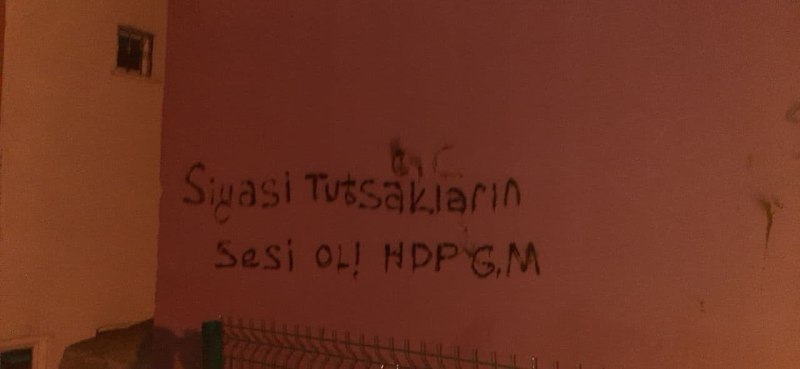 Siyasi Tutsakların
Sesi OL! HDP G.M